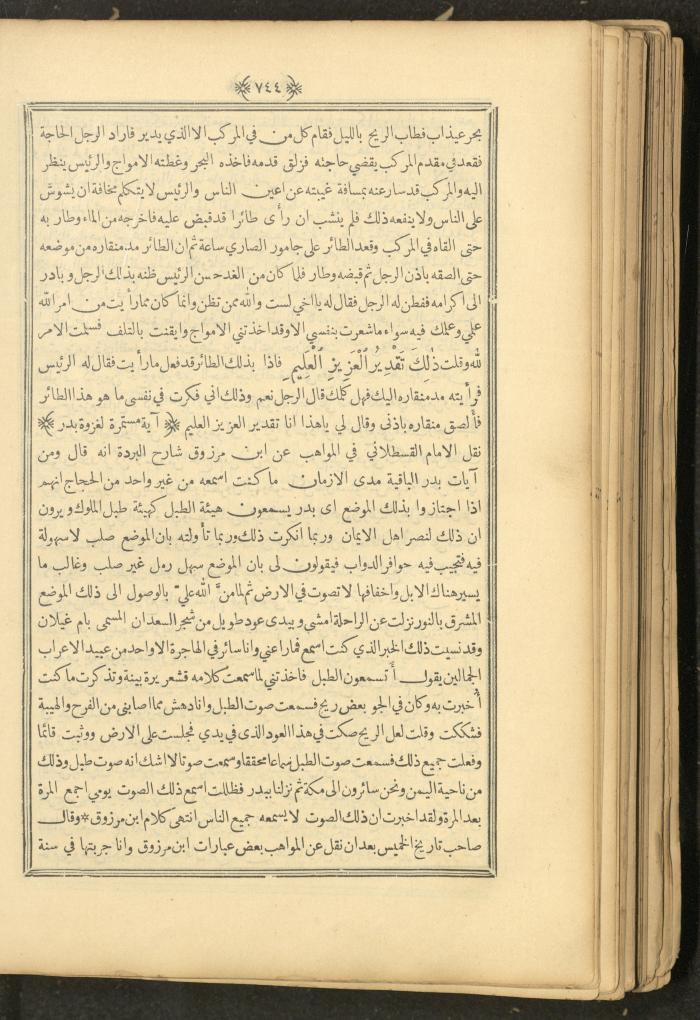 ﴿٧٤٤﴾
بحر عيذاب فطاب الريح بالليل فقام كل من في المركب الا الذي يدير فاراد الرجل الحاجة
فقعد في مقدم المركب يقضي حاجته فزلق قدمه فاخذه البحر وغطته الامواج والرئيس ينظر
اليه والمركب قد سار عنه بمسافة غيبته عن اعين الناس والرئيس لا يتكلم مخافة ان يشوش
على الناس ولا ينفعه ذلك فلم ينشب ان رأى طائرا قد قبض عليه فاخرجه من الماء وطار به
حتى القاه في المركب وقعد الطائر على جامور الصاري ساعة ثم ان الطائر مد منقاره من موضعه
حتى الصقه باذن الرجل ثم قبضه وطار فلما كان من الغد حسن الرئيس ظنه بذلك الرجل وبادر
الى اكرامه ففطن له الرجل فقال له يا اخي لست والله ممن تظن وانما كان مما رأيت من امر الله
علمي وعملك فيه سواء ما شعرت بنفسي الا وقد اخذتني الامواج وايقنت بالتلف فسلمت الامر
لله وقلت ذٰلِكَ تَقْدِيرُ ٱلْعَزِيزِ ٱلْعَلِيمِ فاذا بذلك الطائر قد فعل ما رأيت فقال له الرئيس
فرأيته مد منقاره اليك فهل كلمك قال الرجل نعم وذلك اني فكرت في نفسي ما هو هذا الطائر
فألصق منقاره باذني وقال لي يا هذا انا تقدير العزيز العليم ﴿آية مستمرة لغزوة بدر﴾
نقل الامام القسطلاني في المواهب عن ابن مرزوق شارح البردة انه قال ومن
آيات بدر الباقية مدى الازمان ما كنت اسمعه من غير واحد من الحجاج انهم
اذا اجتازوا بذلك الموضع اى بدر يسمعون هيئة الطبل كهيئة طبل الملوك ويرون
ان ذلك لنصر اهل الايمان وربما انكرت ذلك وربما تأولته بان الموضع صلب لا سهولة
فيه فتجيب فيه حوافر الدواب فيقولون لى بان الموضع سهل رمل غير صلب وغالب ما
يسير هناك الابل واخفافها لا تصوت في الارض ثم لما منَّ الله عليّ بالوصول الى ذلك الموضع
المشرق بالنور نزلت عن الراحلة امشي وبيدى عود طويل من شجر السعدان المسمى بام غيلان
وقد نسيت ذلك الخبر الذي كنت اسمع فما راعني وانا سائر في الهاجرة الا واحد من عبيد الاعراب
الجمالين يقول أتسمعون الطبل فاخذتني لما سمعت كلامه قشعريرة بينة وتذكرت ما كنت
أخبرت به وكان في الجو بعض ريح فسمعت صوت الطبل وانا دهش مما اصابني من الفرح والهيبة
فشككت وقلت لعل الريح صكت في هذا العود الذى في يدي فجلست على الارض ووثبت قائما
وفعلت جميع ذلك فسمعت صوت الطبل سماعا محققا وسمعت صوتا لا اشك انه صوت طبل وذلك
من ناحية اليمن ونحن سائرون الى مكة ثم نزلنا ببدر فظللت اسمع ذلك الصوت يومي اجمع المرة
بعد المرة ولقد اخبرت ان ذلك الصوت لا يسمعه جميع الناس انتهى كلام ابن مرزوق * وقال
صاحب تاريخ الخميس بعد ان نقل عن المواهب بعض عبارات ابن مرزوق وانا جربتها في سنة